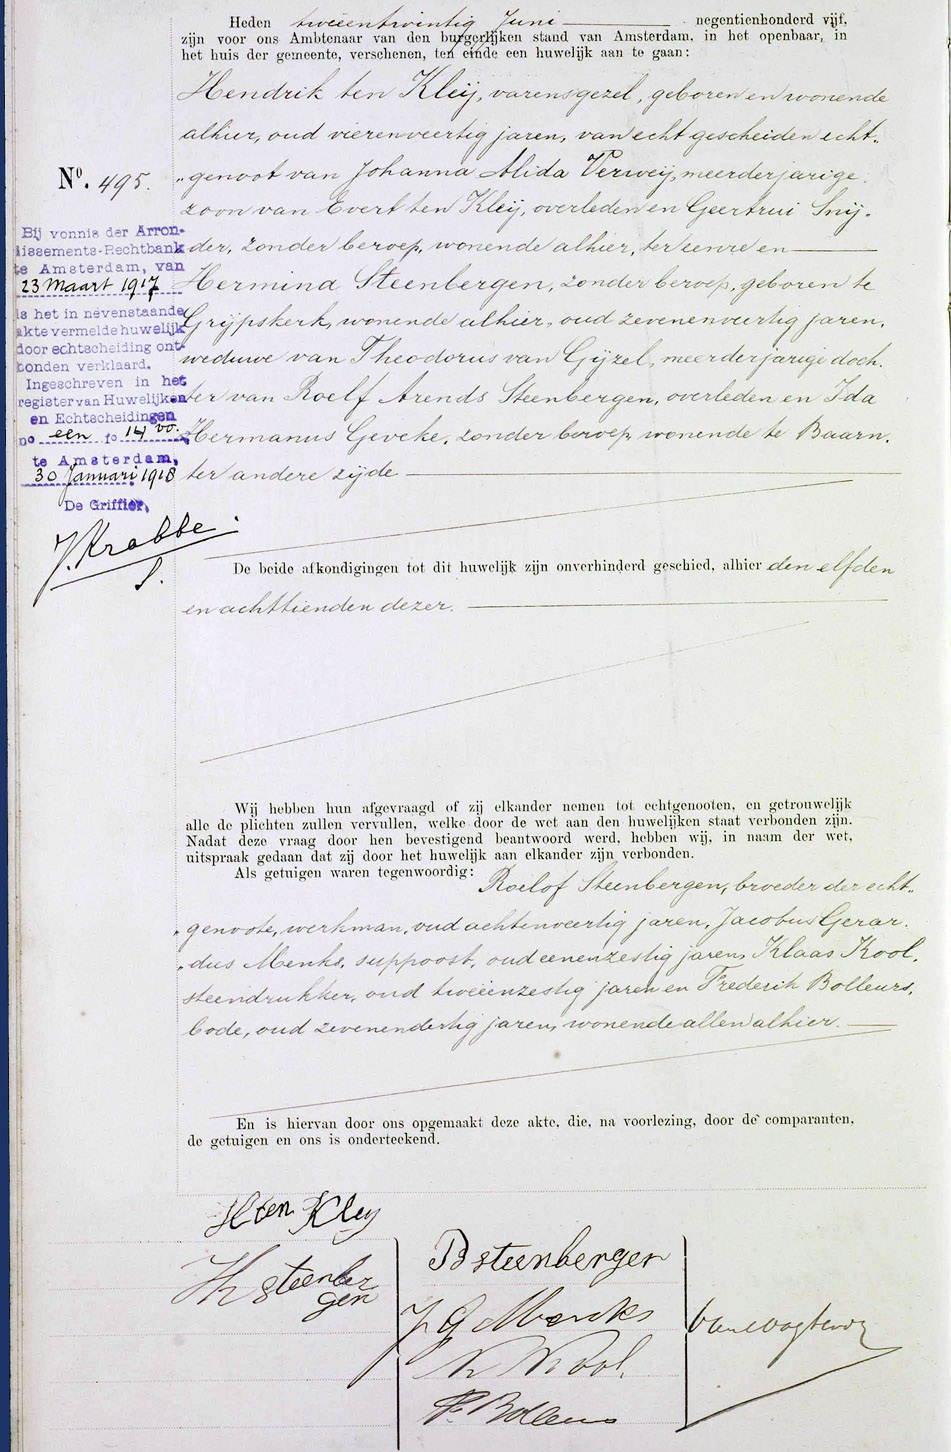 Heden tweeentwintig Juni negentienhonderd vijf,
zijn voor ons Ambtenaar van den burgerlijken stand van Amsterdam, in het openbaar, in
het huis der gemeente, verschenen, ten einde een huwelijk aan te gaan:
Hendrik ten Kleij, varensgezel, geboren en wonende
alhier, oud vierenveertig jaren, van echt gescheiden echt„
„genoot van Johanna Alida Verweij, meerderjarige
zoon van Evert ten Kleij, overleden en Geertrui Snij„
der, zonder beroep, wonende alhier, ter eenre en
Hermina Steenbergen, zonder beroep, geboren te
Grijpskerk, wonende alhier, oud zevenenveertig jaren,
weduwe van Theodorus van Gijzel, meerderjarige doch„
ter van Roelf Arends Steenbergen, overleden en Ida
Hermanus Geveke, zonder beroep wonende te Baarn,
ter andere zijde
No. 495.
Bij vonnis der Arron-
dissements-Rechtbank
te Amsterdam, van
23 Maart 1917
is het in nevenstaande
akte vermelde huwelijk
door echtscheiding ont-
bonden verklaard.
Ingeschreven in het
register van Huwelijken
en Echtscheidingen
no een fo 14 vo.
te Amsterdam,
30 Januari 1918
De Griffier,
J. Krabbe
De beide afkondigingen tot dit huwelijk zijn onverhinderd geschied, alhier den elfden
en achttienden dezer.
Wij hebben hun afgevraagd of zij elkander nemen tot echtgenooten, en getrouwelijk
alle de plichten zullen vervullen, welke door de wet aan den huwelijken staat verbonden zijn.
Nadat deze vraag door hen bevestigend beantwoord werd, hebben wij, in naam der wet,
uitspraak gedaan dat zij door het huwelijk aan elkander zijn verbonden.
Als getuigen waren tegenwoordig: Roelof Steenbergen, broeder der echt„
„genoote, werkman, oud achtenveertig jaren, Jacobus Gerar„
„dus Menks, suppoost, oud eenenzestig jaren, Klaas Kool,
steendrukker, oud tweeenzestig jaren en Frederik Bolleurs,
bode, oud zevenendertig jaren, wonende allen alhier.
En is hiervan door ons opgemaakt deze akte, die, na voorlezing, door de comparanten,
de getuigen en ons is onderteekend.
H ten Kley
H steenber
gen
R steenbergen
J G Menks
K Kool.
F. Bolleurs